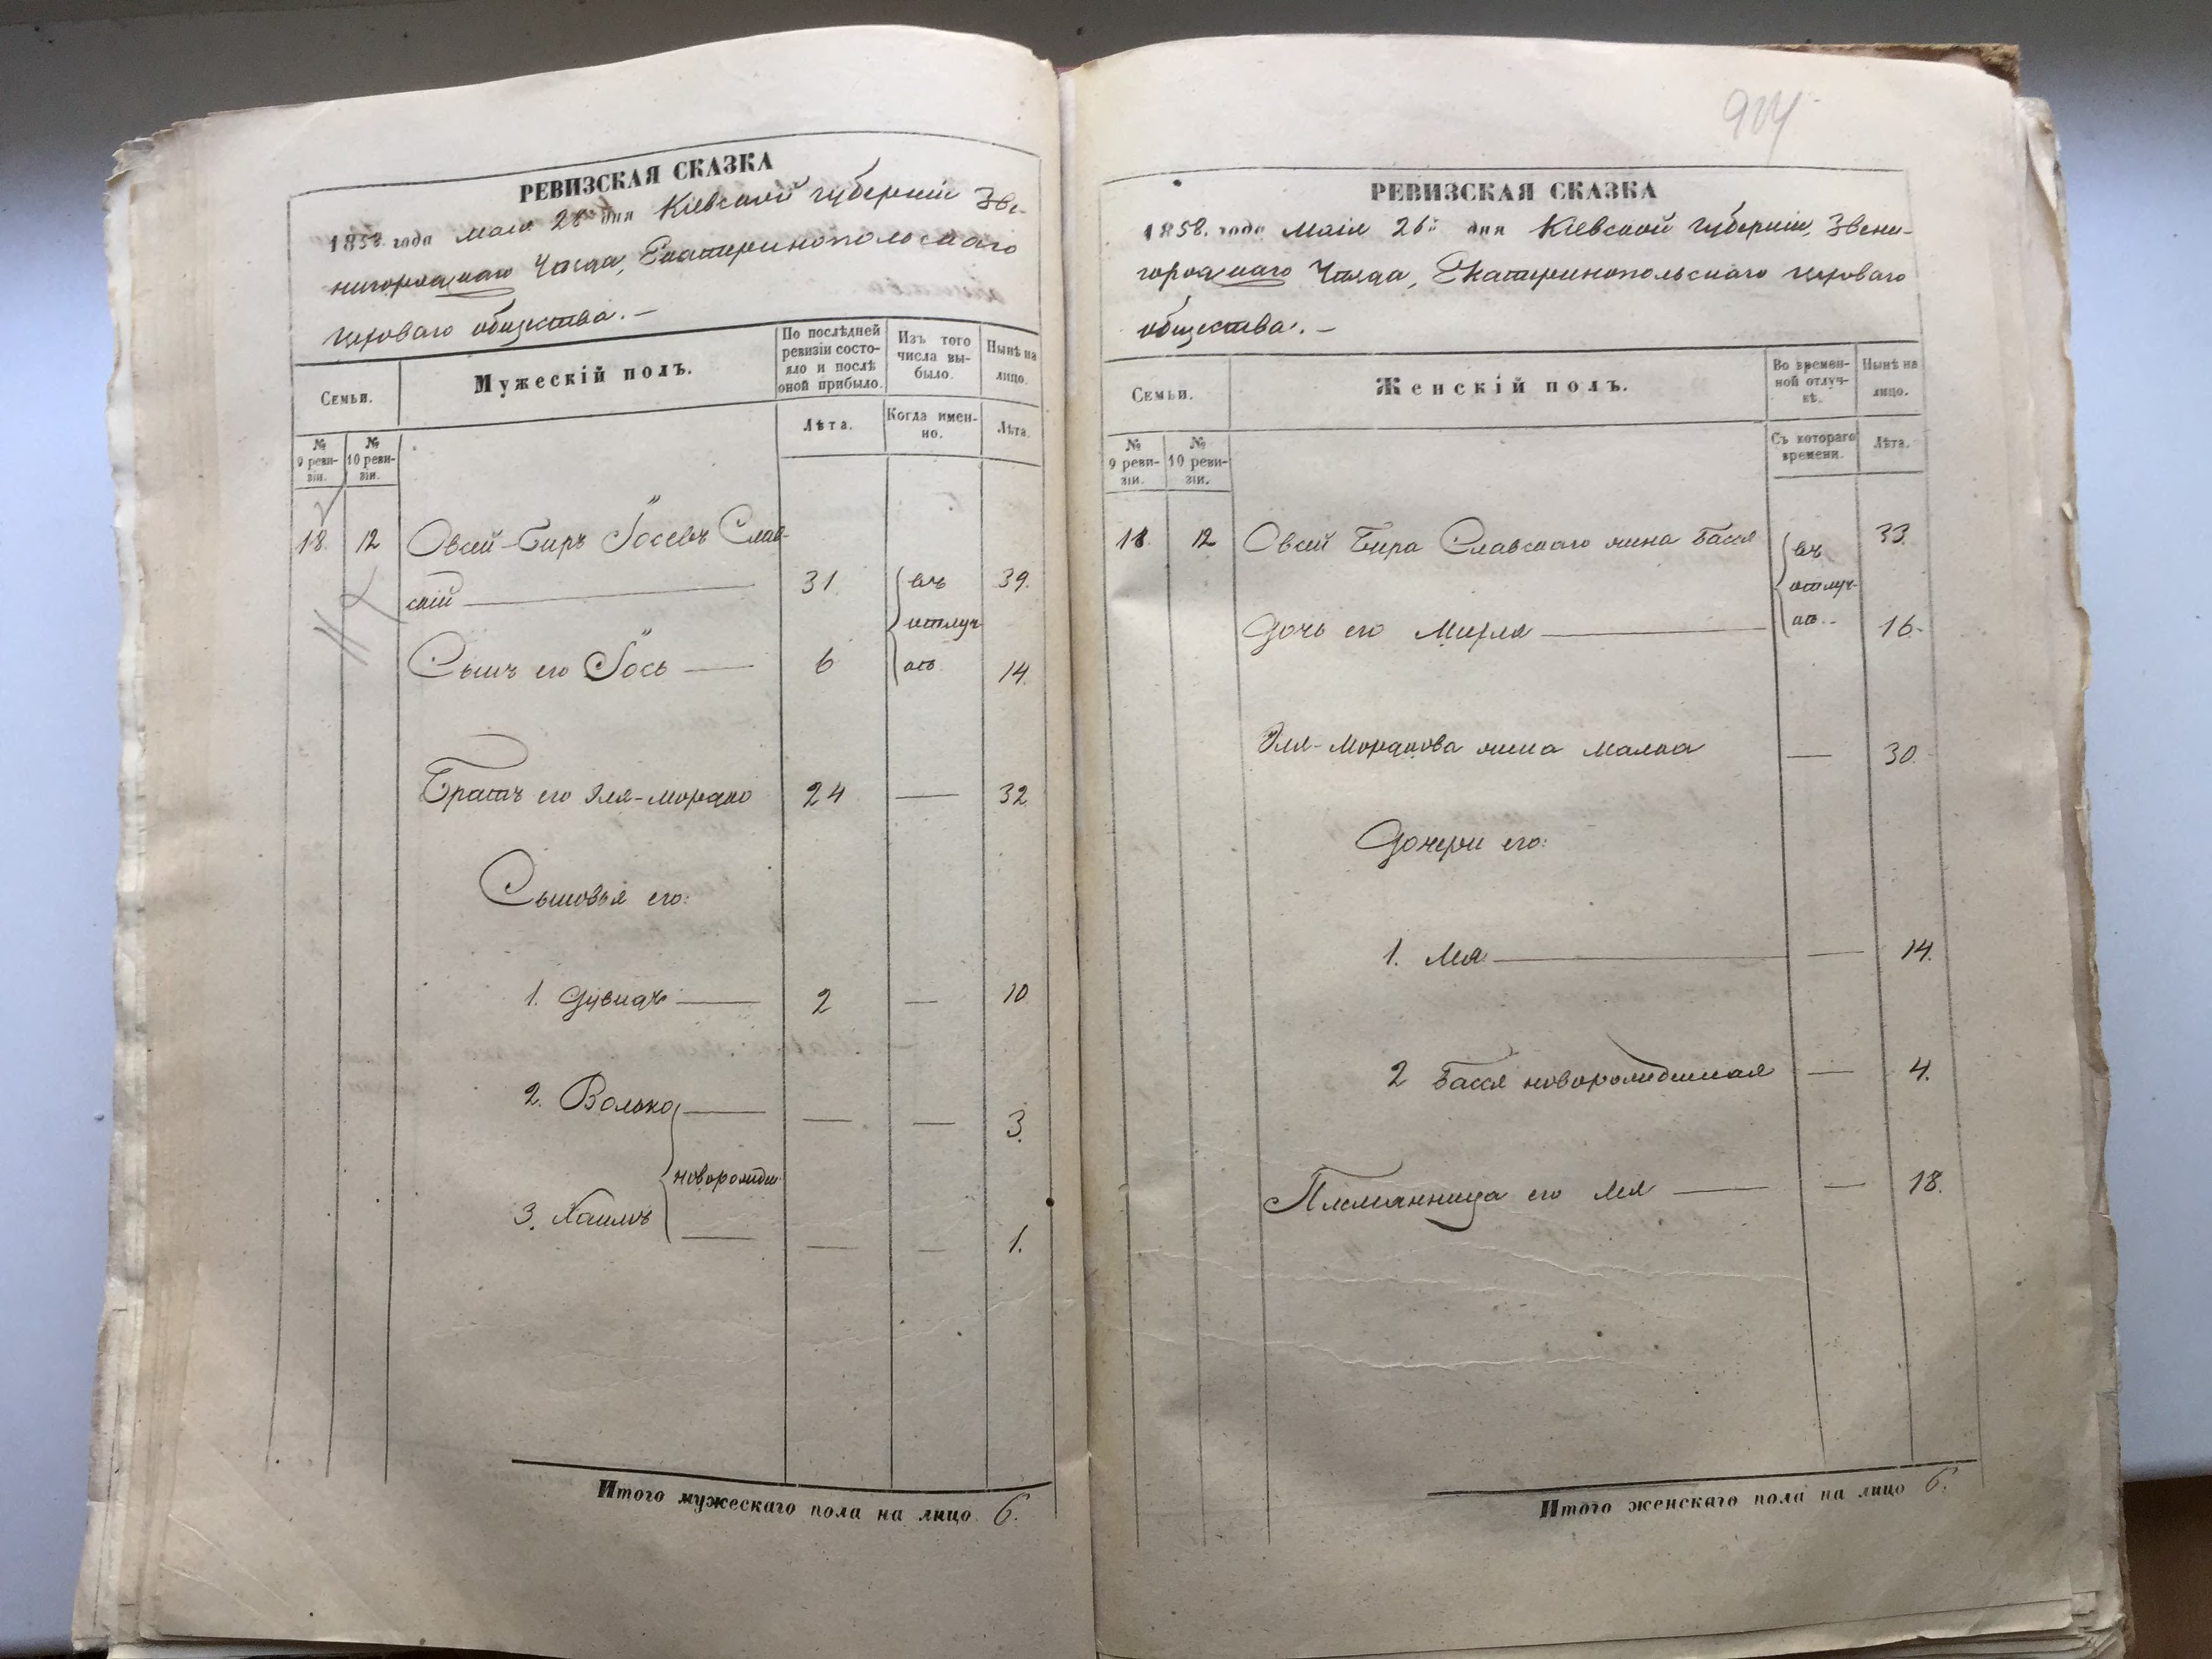 РЕВИЗСКАЯ СКАЗКА
1858 года маія 26 дня Кіевской губерніи Зве-
нигородскаго Уѣзда, Екатеринопольскаго
еврѣваго общества. —
Семьи.
Мужескій полъ.
По послѣдней ревизіи состо-
яло и послѣ оной прибыло.
Изъ того числа вы-
было.
Нынѣ на лицо.
Лѣта.
Когда имен-
но.
Лѣта.
№ 9 реви-
зіи.
№ 10 реви-
зіи.
18. 12 Овсей-Беръ Іосевъ Слав-
скій — 31 въ 39.
отлуч-
Сынъ его Іось — 6 кѣ 14.
Братъ его Эля-Мордко 24 — 32
Сыновья его:
1. Дувидъ — 2 — 10
2. Волько — — — 3.
новорожден
3. Хаимъ — — — 1.
Итого мужескаго пола на лицо 6.
924
РЕВИЗСКАЯ СКАЗКА
1858. года Маія 26го дня Кіевской губерніи, Звени-
городскаго Уѣзда, Екатеринопольскаго
общества. —
Семьи.
Женскій полъ.
Во времен-
ной отлуч-
кѣ.
Нынѣ на лицо.
Съ котораго времени.
Лѣта.
№ 9 реви-
зіи.
№ 10 реви-
зіи.
18. 12 Овсей Бера Славскаго жена Бася въ 33.
отлуч-
Дочь его Мирля — кѣ 16.
Эля-Мордкова жена Малка — 30.
Дочери его:
1. Лея — — 14.
2 Бася новорожденная — 4.
Племянница его Лея — — 18.
Итого женскаго пола на лицо 6.